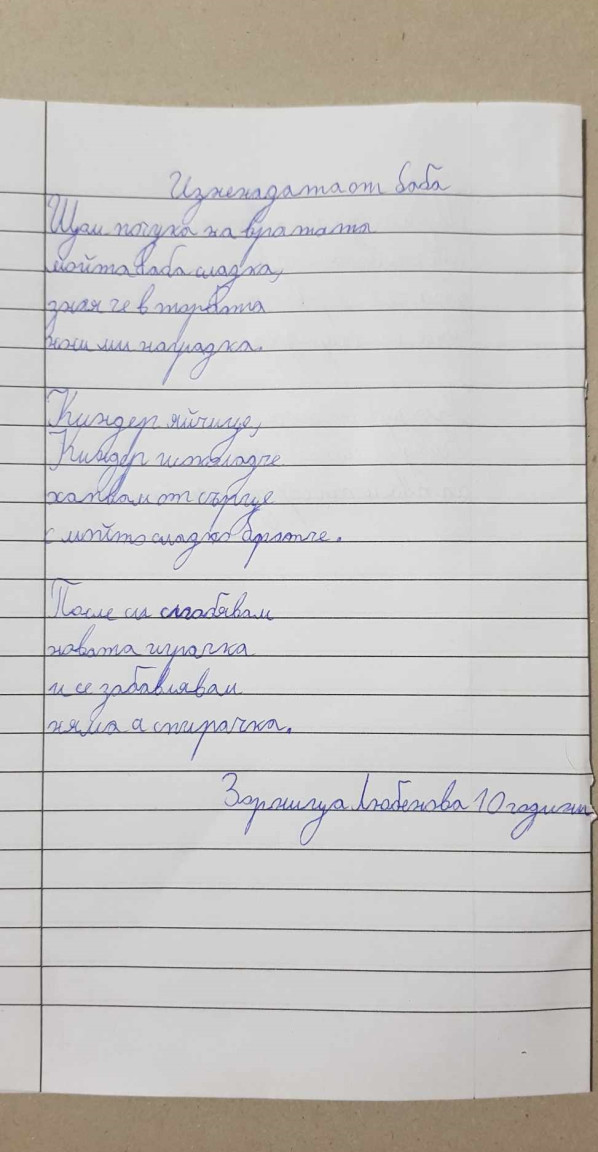 Изненадата от баба
Щом почука на вратата
мойта баба сладка,
зная че в торбата
носи ми наградка.
Киндер яйчице,
Киндер шоколадче
хапвам от сърце
с мойто сладко братче.
После си сглобявам
новата играчка
и се забавлявам
няма а спирачка.
Зорница Любенова 10 години